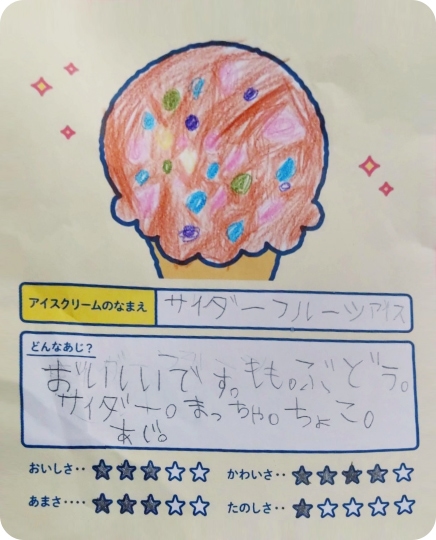 アイスクリームのなまえ
サイダーフルーツアイス
どんなあじ?
おいしいです。もも。ぶどう。
サイダー。まっちゃ。ちょこ。
あじ。
おいしさ‥ ★★★☆☆
かわいさ‥ ★★★★☆
あまさ‥‥ ★★★☆☆
たのしさ‥ ★☆☆☆☆